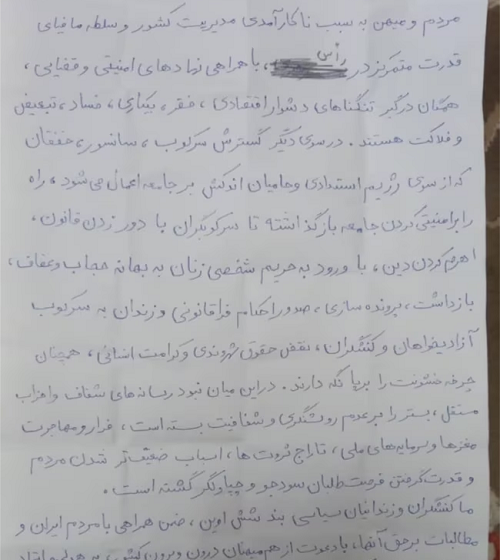 مردم و میهن به سبب ناکارآمدی مدیریت کشور و سلطه مافیای
قدرت متمرکز در رأس، با همراهی نهادهای امنیتی و قضایی،
همگان درگیر تنگناهای دشوار اقتصادی، فقر، بیکاری، فساد، تبعیض
و فلاکت هستند. در سوی دیگر گسترش سرکوب، سانسور، خفقان
که از سوی رژیم استبدادی و حامیان اندکش بر جامعه اعمال می‌شود، راه
را برامنیتی کردن جامعه بازگذاشته تا سرکوبگران با دور زدن قانون،
اهرم کردن دین، با ورود به حریم شخصی زنان به بهانه حجاب و عفاف،
بازداشت، پرونده سازی، صدور احکام فراقانونی و زندان به سرکوب
آزادیخواهان و کنشگران، نقض حقوق شهروندی و کرامت انسانی، همچنان
چرخه خشونت را برپا نگه دارند. در این میان نبود رسانه‌های شفاف و احزاب
مستقل، بستر را بر عدم روشنگری و شفافیت بسته است، فرار و مهاجرت
مغزها و سرمایه‌های ملی، تاراج ثروت‌ها، اسباب ضعیف‌تر شدن مردم
و قدرت گرفتن فرصت طلبان سودجو و چپاولگر گشته است.
ما کنشگران و زندانیان سیاسی بند شش اوین، ضمن همراهی با مردم ایران و
مطالبات برحق آنها، با دعوت از هم‌میهنان درون و برون کشور، به